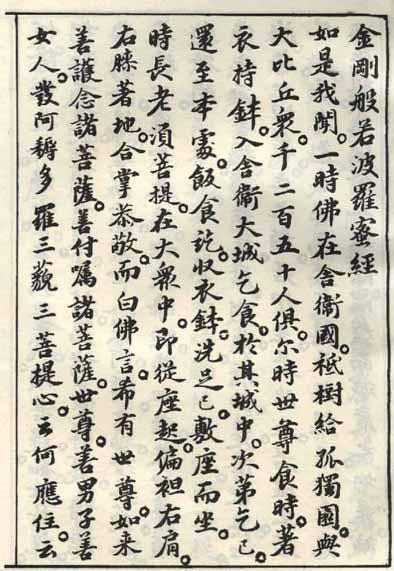 金剛般若波羅蜜經
如是我聞。一時佛在舍衛國祗樹給孤獨園與
大比丘衆。千二百五十人俱。尔時世尊食時。著
衣持鉢。入舍衛大城乞食。於其城中。次第乞已。
還至本處。飯食訖。收衣鉢。洗足已。敷座而坐。
時長老須菩提。在大衆中。即從座起。偏袒右肩。
右膝著地。合掌恭敬。而白佛言。希有世尊。如来
善護念諸菩薩。善付囑諸菩薩。世尊。善男子善
女人。發阿耨多羅三藐三菩提心。云何應住。云